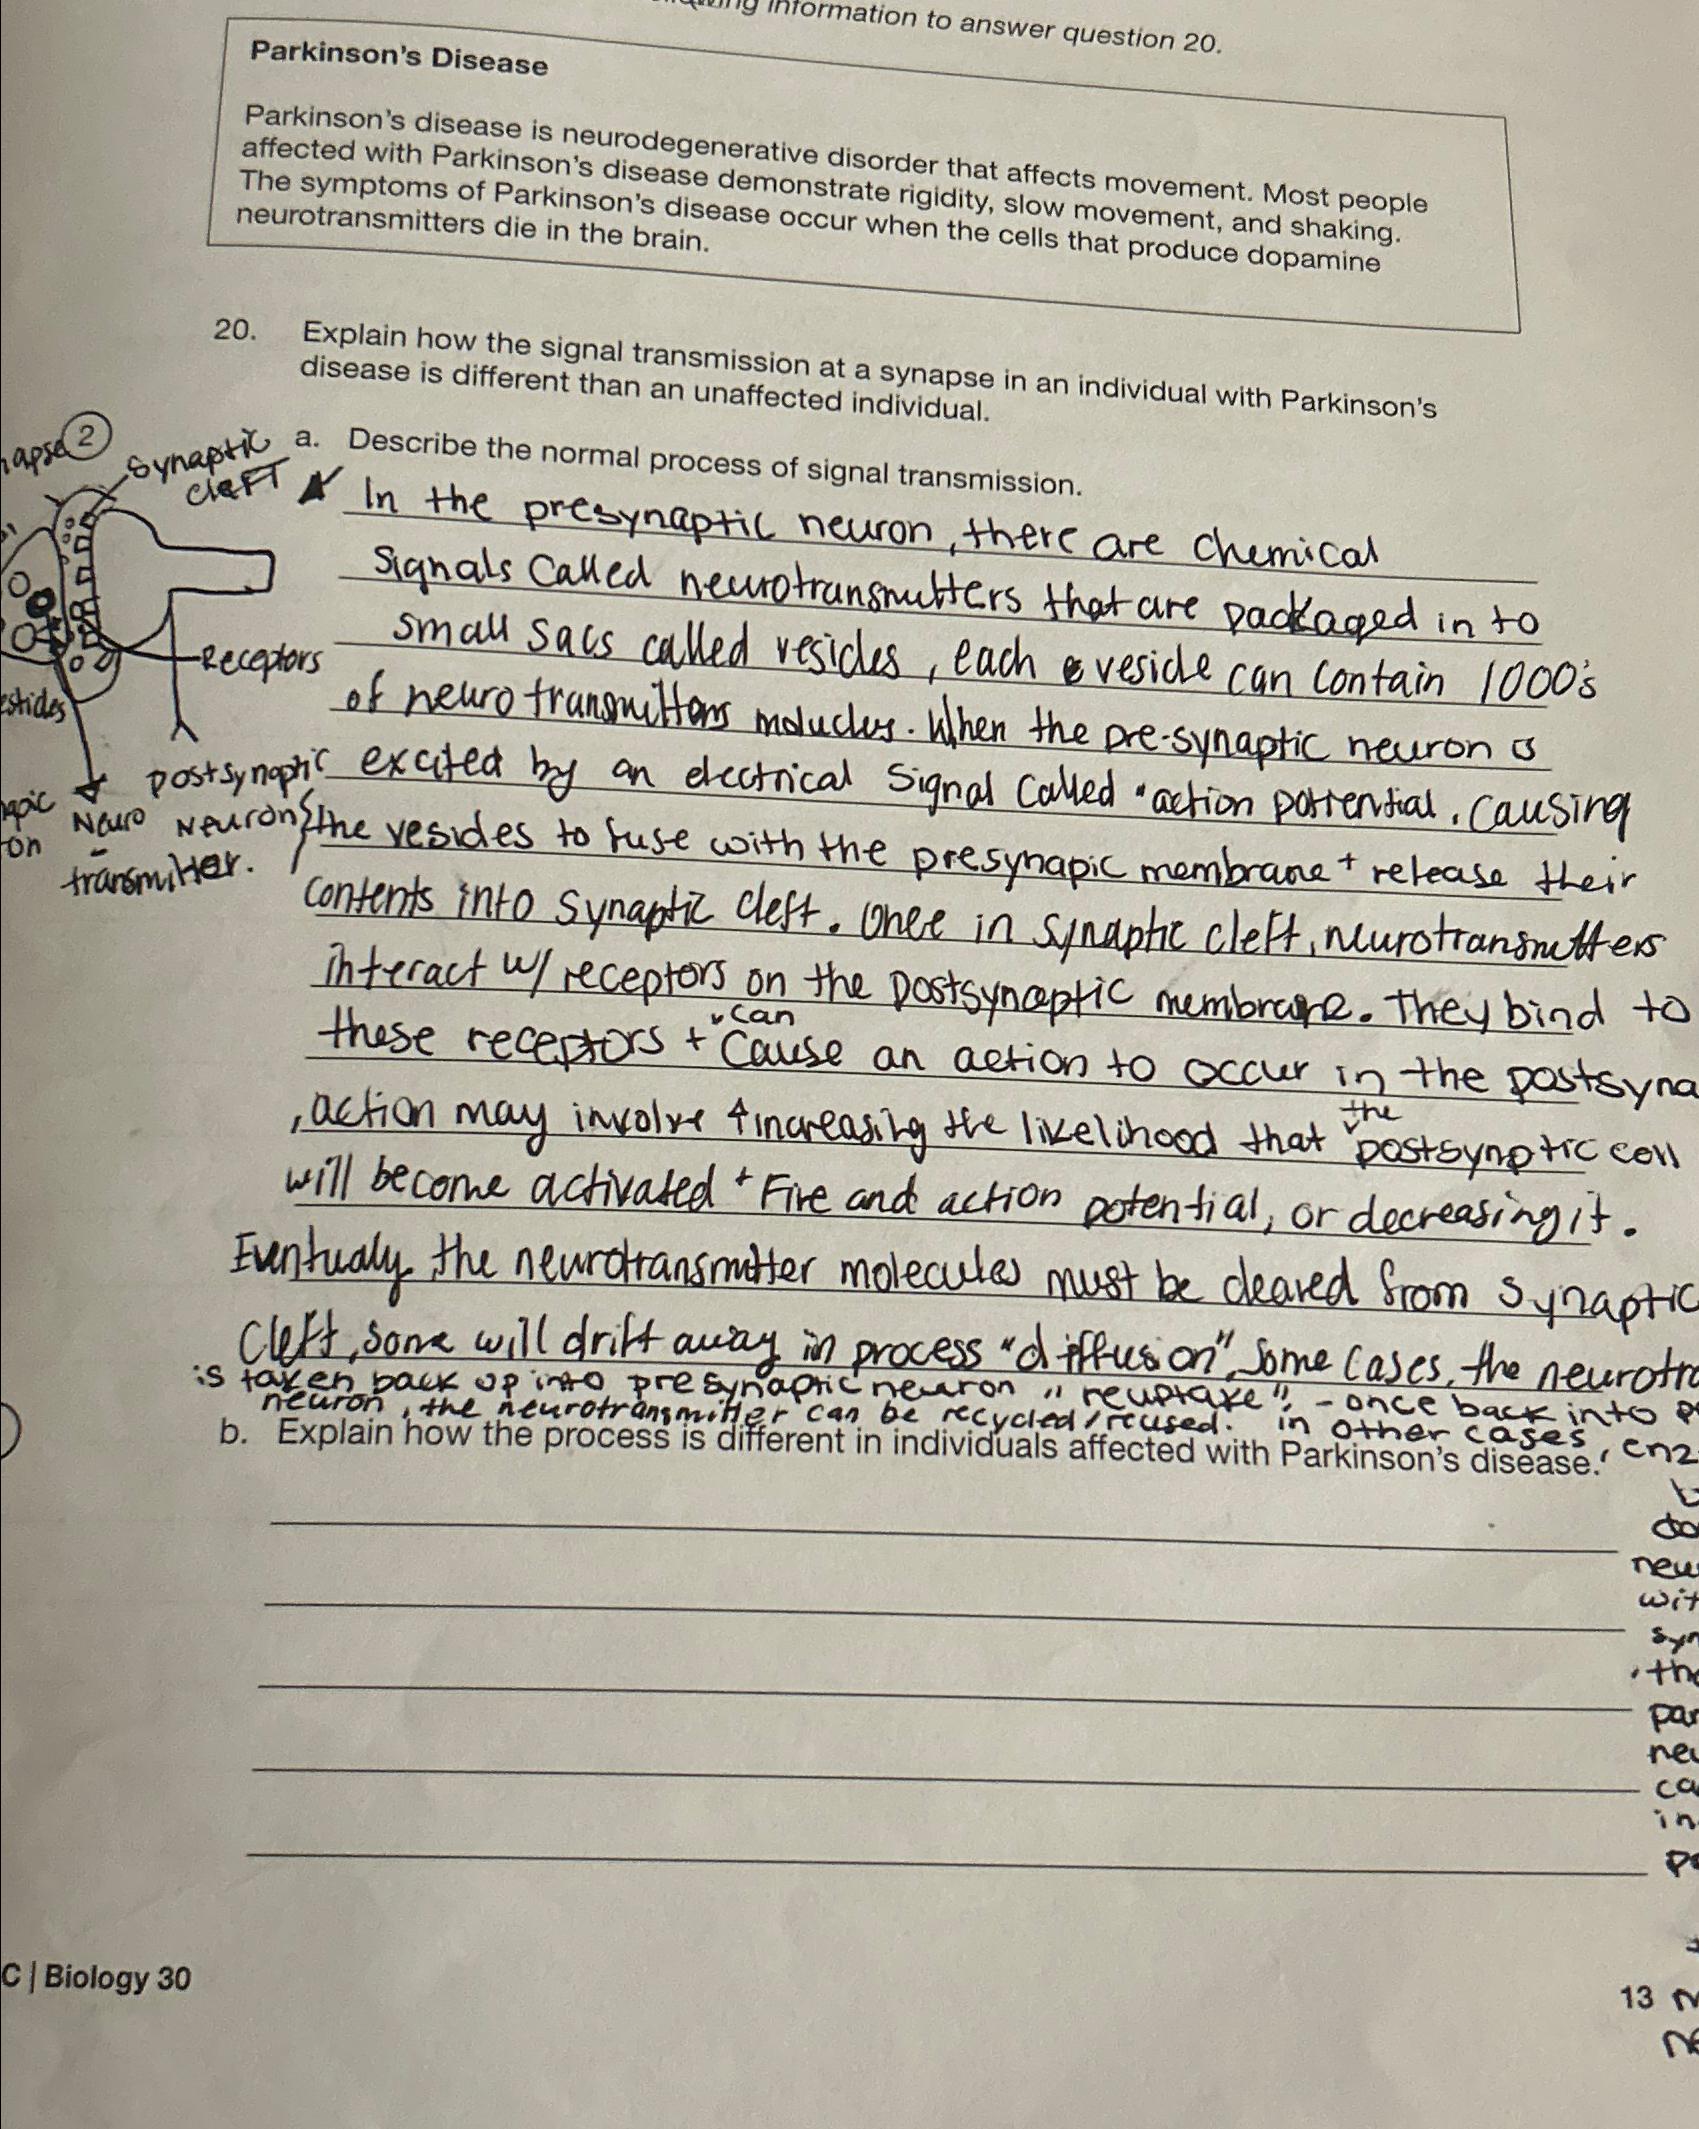 information to answer question 20.
Parkinson's Disease
Parkinson's disease is neurodegenerative disorder that affects movement. Most people
affected with Parkinson's disease demonstrate rigidity, slow movement, and shaking.
The symptoms of Parkinson's disease occur when the cells that produce dopamine
neurotransmitters die in the brain.
20. Explain how the signal transmission at a synapse in an individual with Parkinson's
disease is different than an unaffected individual.
2
Synaptic
cleft
Receptors
postsynaptic
Neuron
Neuro
-
transmitter.
a. Describe the normal process of signal transmission.
In the presynaptic neuron, there are chemical
Signals Called neurotransmitters that are packaged in to
small sacs called vesicles, each vesicle can contain 1000's
of neurotransmitters molucles. When the pre-synaptic neuron is
excited by an electrical Signal Called "action potential. Causing
the vesicles to fuse with the presynapic membrane + release their
contents into synaptic cleft. Once in synaptic cleft, neurotransmitters
interact w/ receptors on the postsynaptic membrane. They bind to
these receptors + can Cause an action to occur in the postsyna
, action may involve ↑increasing the likelihood that the postsynptic cell
will become activated + Fire and action potential, or decreasing it.
Eventualy the neurotransmitter molecules must be cleared from synaptic
Cleft, some will drift away in process "diffusion", some cases, the neurotra
is taken back up into presynaptic neuron "reuptake", - once back into
neuron, the neurotransmitter can be recycled/reused. in other cases, enz
b. Explain how the process is different in individuals affected with Parkinson's disease.
neu
wit
syn
th
par
neu
ca
in
C | Biology 30
13